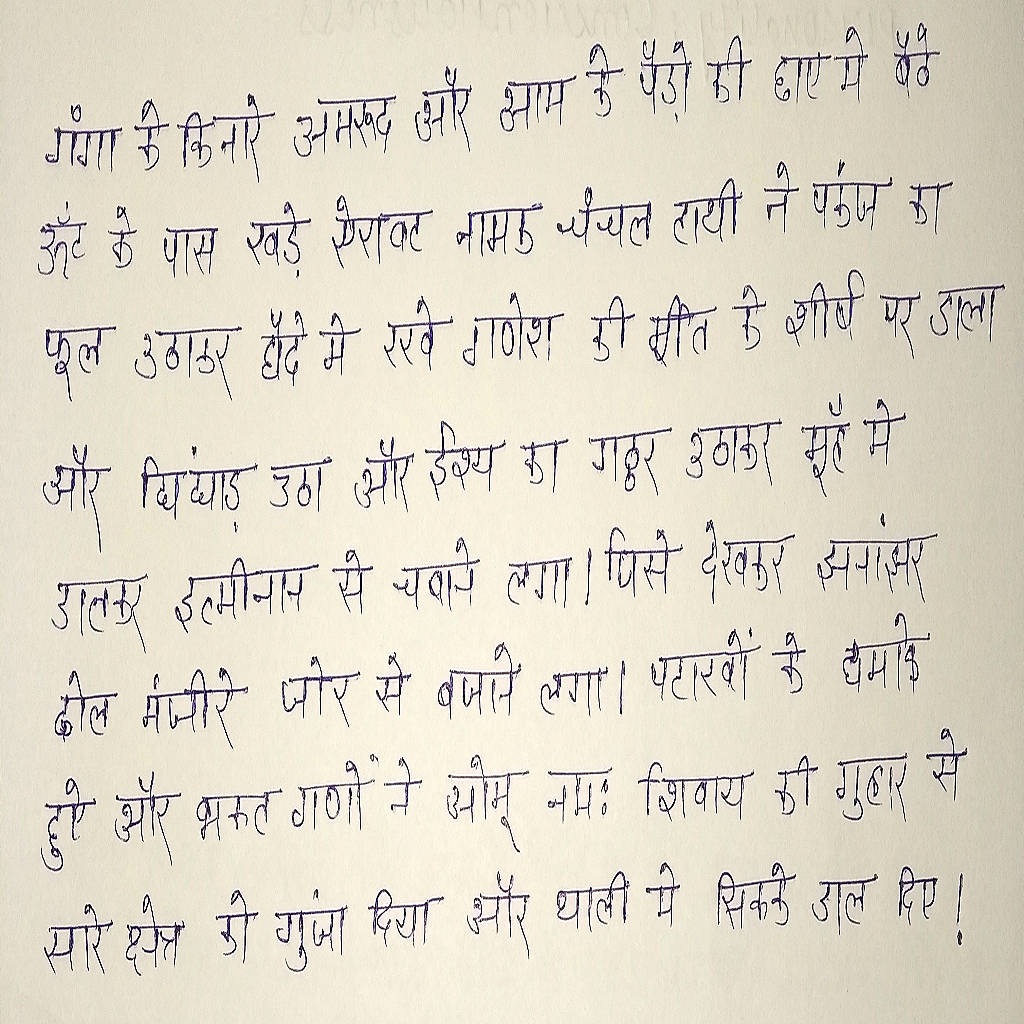 गंगा के किनारे अमरूद और आम के पेड़ो की छाए मे बैठे
ऊँट के पास खड़े ऐरावट नामक चंचल हाथी ने पकंज का
फूल उठाकर हौदे मे रखे गणेश की मूर्ति के शीर्ष पर डाला
और चिंघाड़ उठा और ईख्य का गट्ठर उठाकर मूहँ मे
डालकर इत्मीनान से चबाने लगा। जिसे देखकर झनांझर
ढोल मंजीरे जोर से बजाने लगा। पटाखों के धमाके
हुऐ और भकत गणों ने ओम् नमः शिवाय की गुहार से
सारे क्षेत्र को गुंजा दिया और थाली मे सिकके डाल दिए।